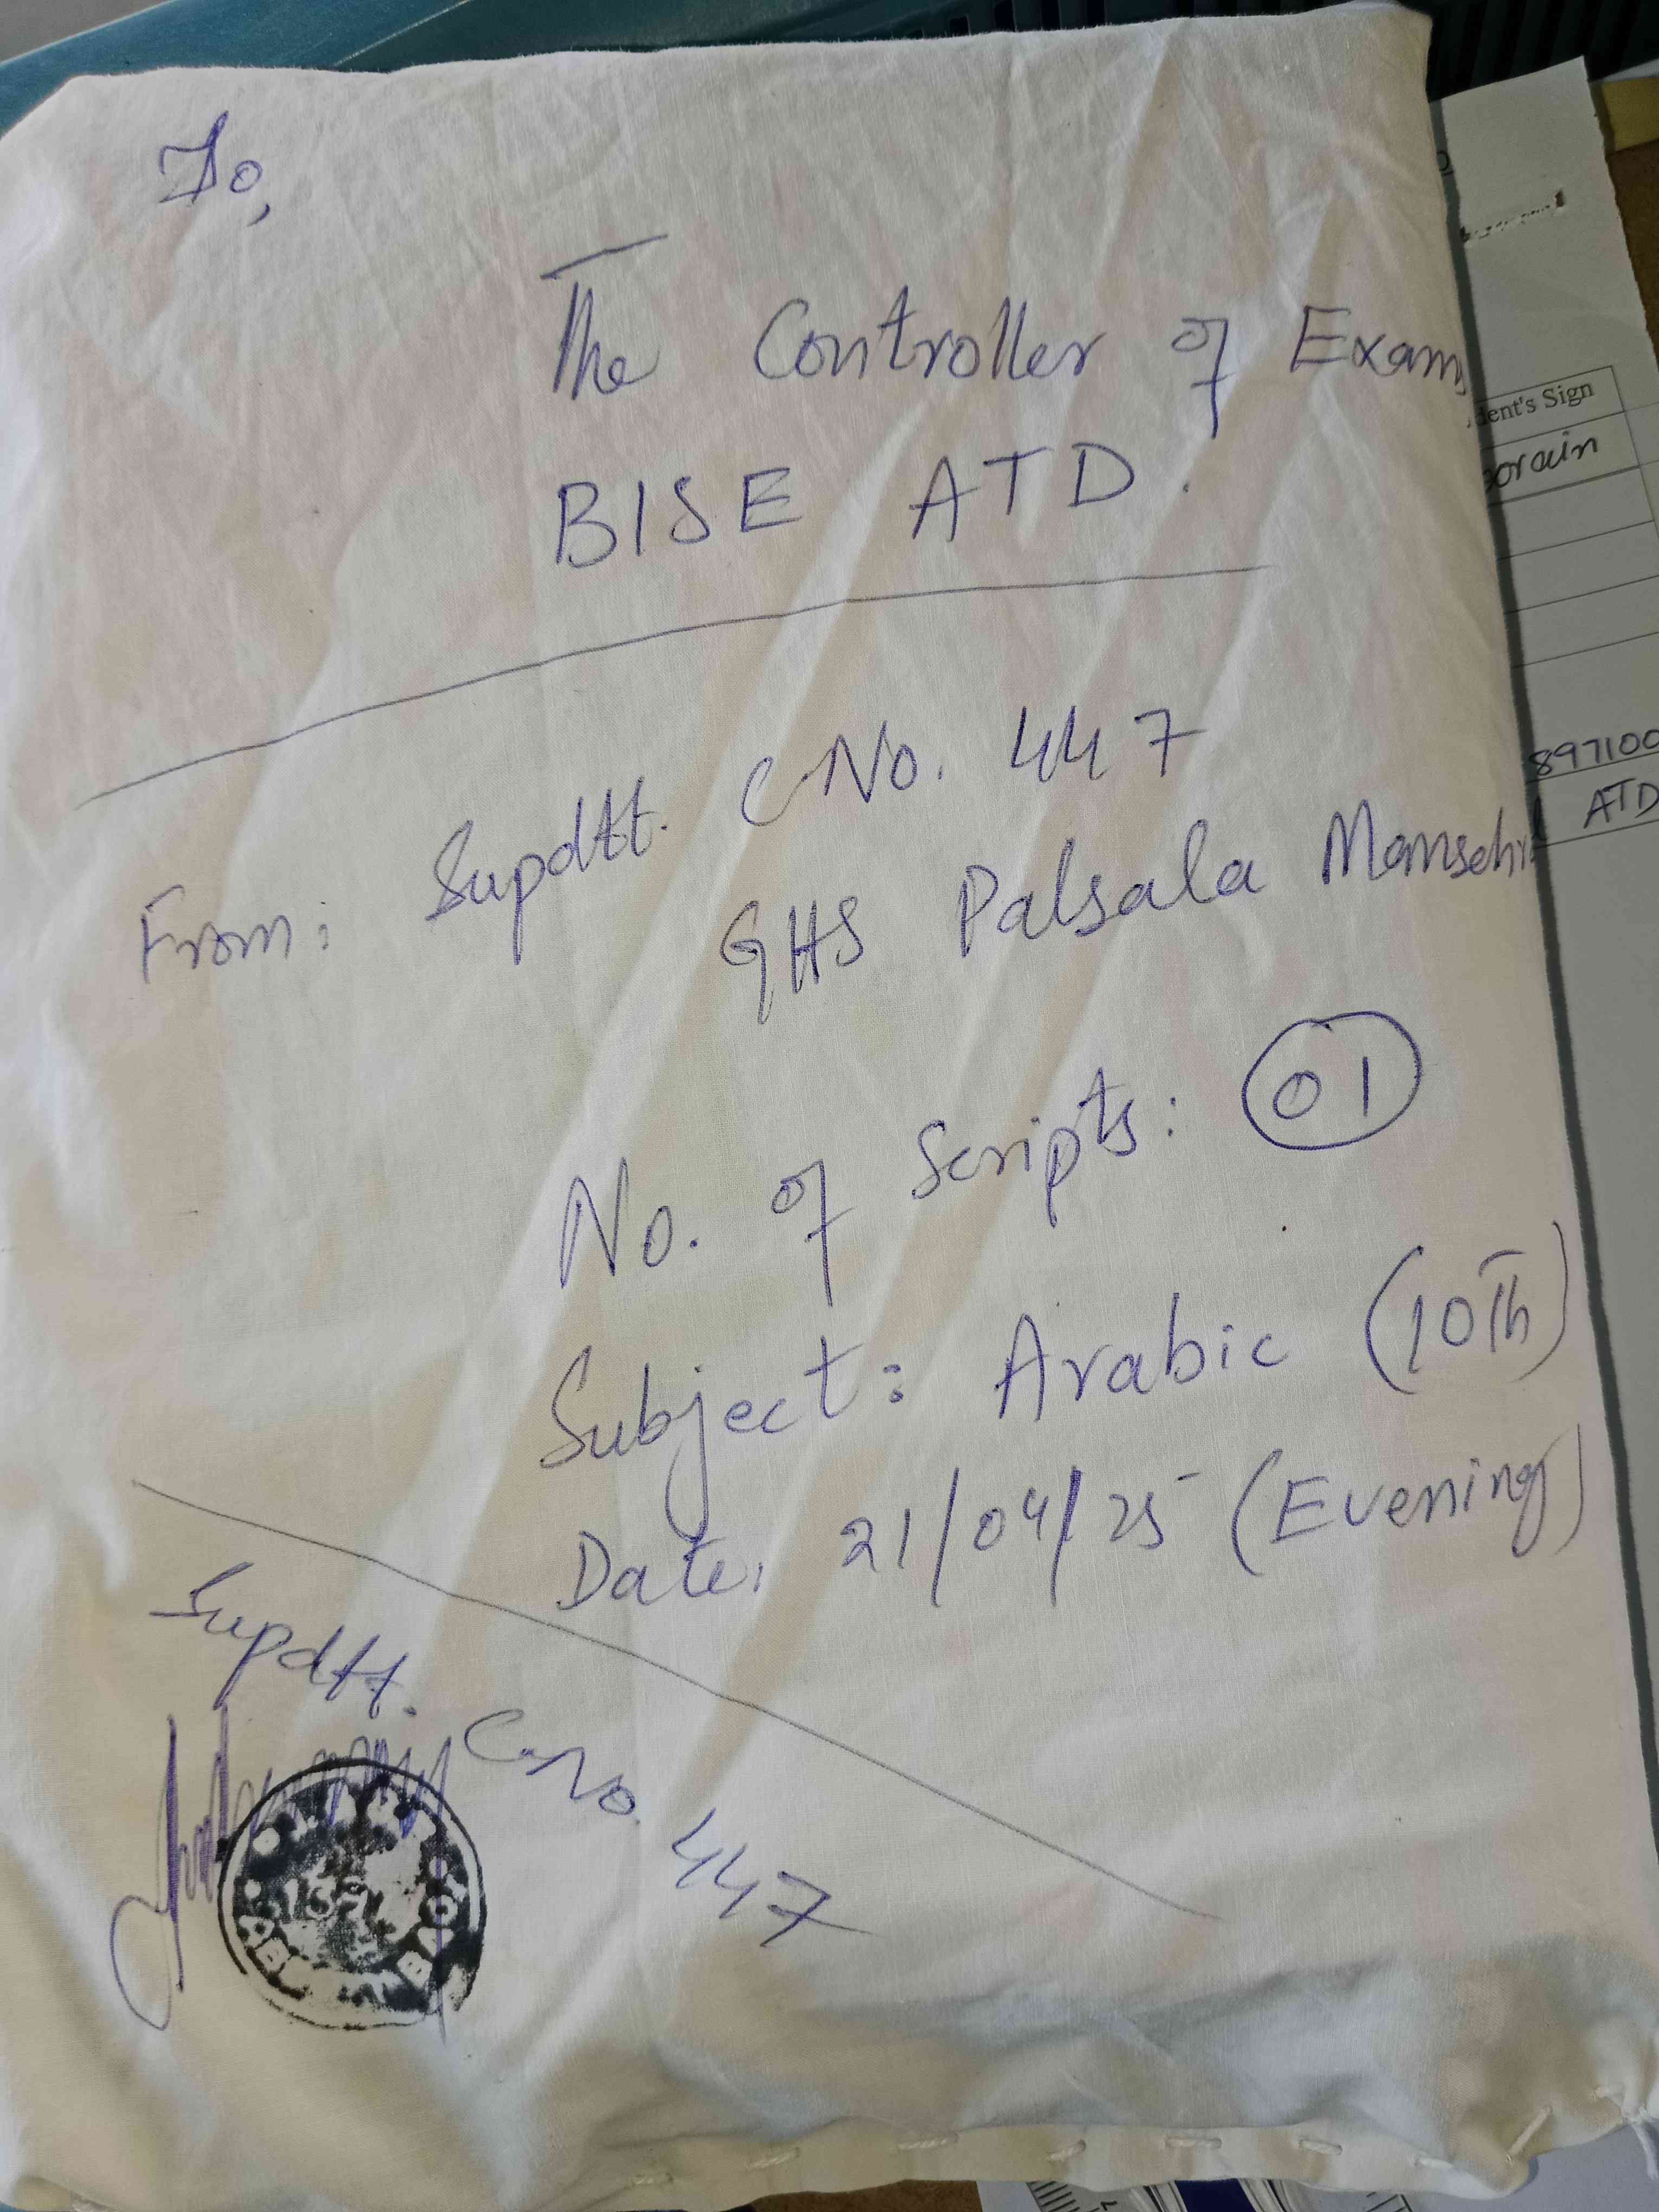 To,
The Controller of Exam
BISE ATD.
From: Supdtt. C No. 447
GHS Palsala Mansehra
No. of Scripts: 01
Subject: Arabic (10Th)
Date: 21/04/25 (Evening)
Supdtt. C.No. 447
dent's Sign
897100
ATD